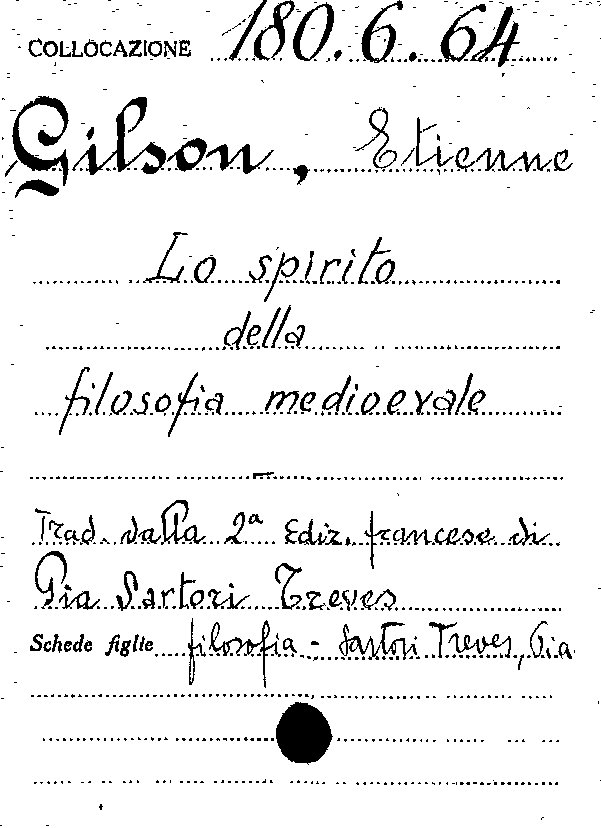 COLLOCAZIONE 180.6.64
Gilson, Etienne
Lo spirito
della
filosofia medioevale
—
Trad. dalla 2ª Ediz. francese di
Pia Sartori Treves
Schede figlie filosofia - Sartori Treves, Pia